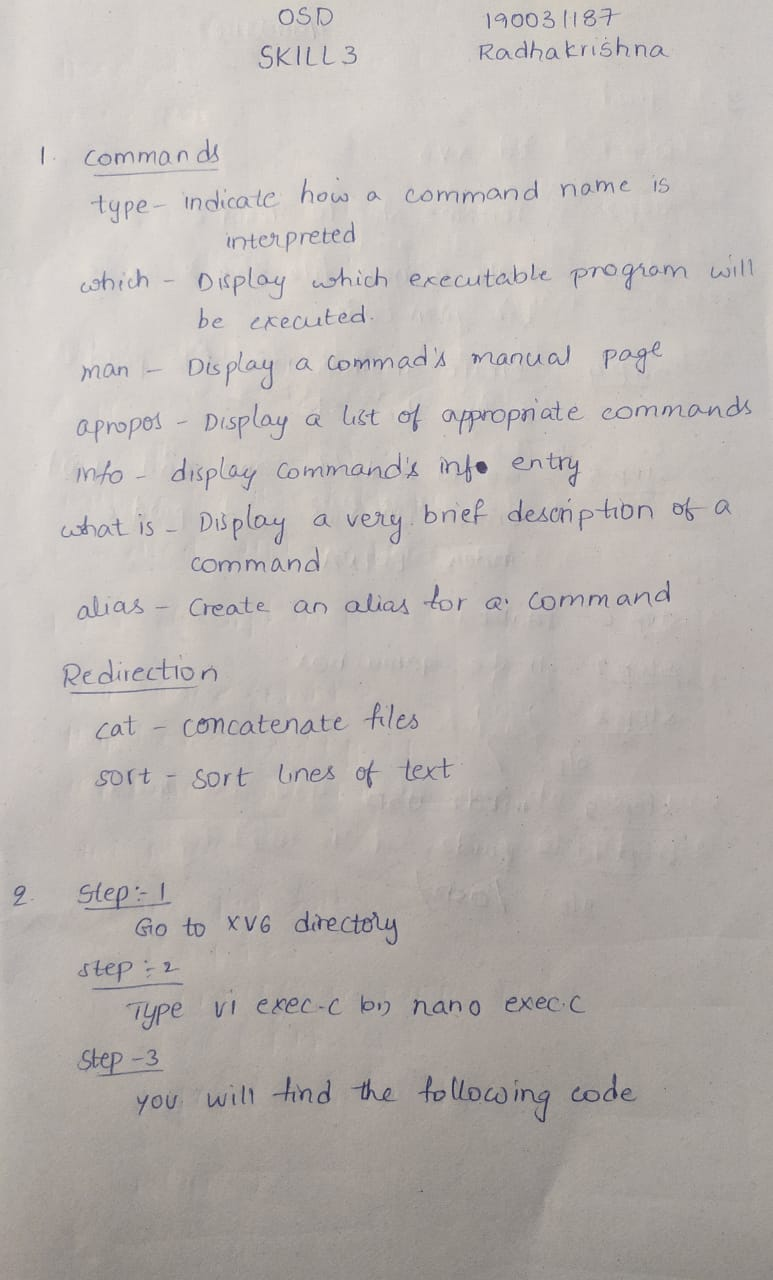 OSD 190031187
SKILL3 Radhakrishna
1. Commands
type - indicate how a command name is
interpreted
which - Display which executable program will
be executed.
man - Display a Commad's manual page
apropos - Display a list of appropriate commands
info - display command's info entry
what is - Display a very brief description of a
command
alias - Create an alias for a command
Redirection
cat - concatenate files
sort - Sort lines of text
2. Step:- 1
Go to XV6 directory
step :- 2
Type vi exec.c nano exec.c
Step -3
you will find the following code